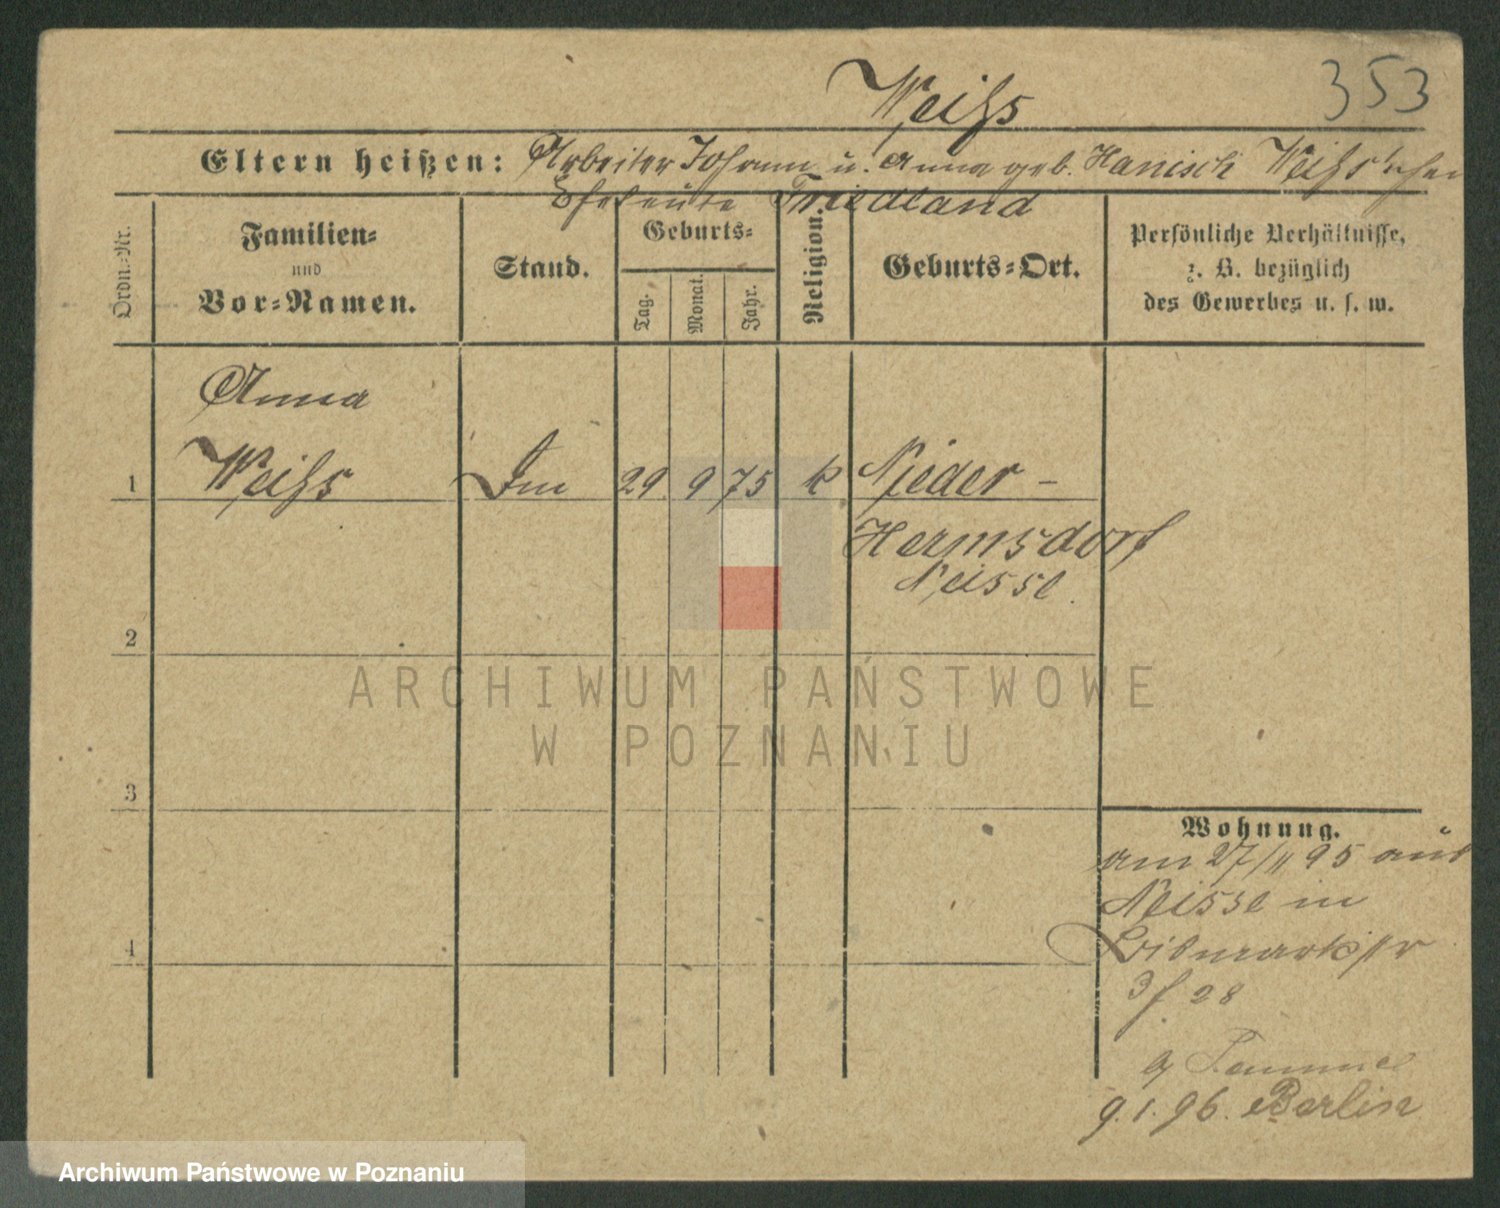 353
Weiss
Eltern heißen: Arbeiter Johann u. Anna geb. Hanisch Weiss'schen
Eheleute Friedland
Ordn.-Nr.
Familien-
und
Vor-Namen.
Stand.
Geburts-
Tag.
Monat.
Jahr.
Religion.
Geburts-Ort.
Persönliche Verhältnisse,
z. B. bezüglich
des Gewerbes u. s. w.
Anna
1 Weiss 29 9 75 k Nieder-
Hermsdorf
Neisse.
2
3
4
Wohnung.
am 27/11 95 aus
Neisse in
Bismarkstr
28
9.1.96. Berlin
ARCHIWUM PAŃSTWOWE
W POZNANIU
Archiwum Państwowe w Poznaniu